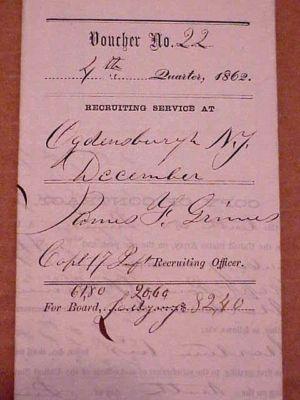 Voucher No. 22
4th Quarter, 1862.
RECRUITING SERVICE AT
Ogdensburgh N.Y.
December
James F. Grimes
Capt 17 Inft Recruiting Officer.
6180 2060
For Board, Lodgings 8240